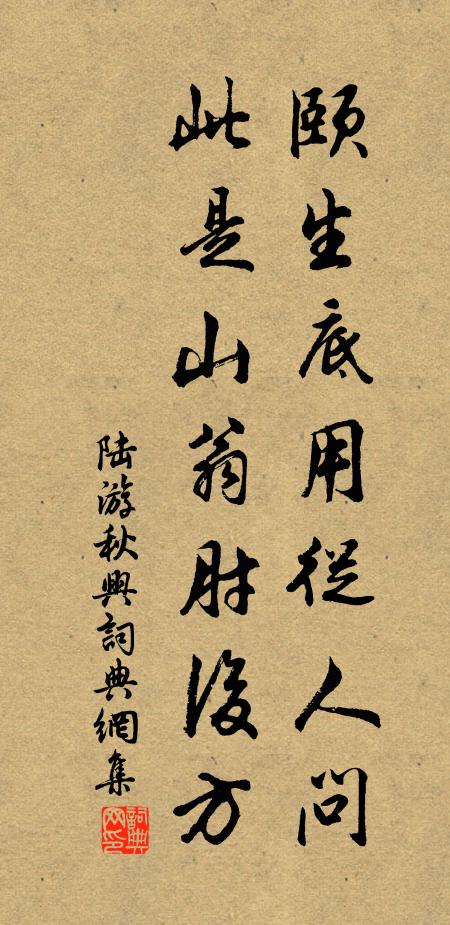 頤生底用從人問
此是山翁肘後方
陆游秋興詞典網集
詞典网印